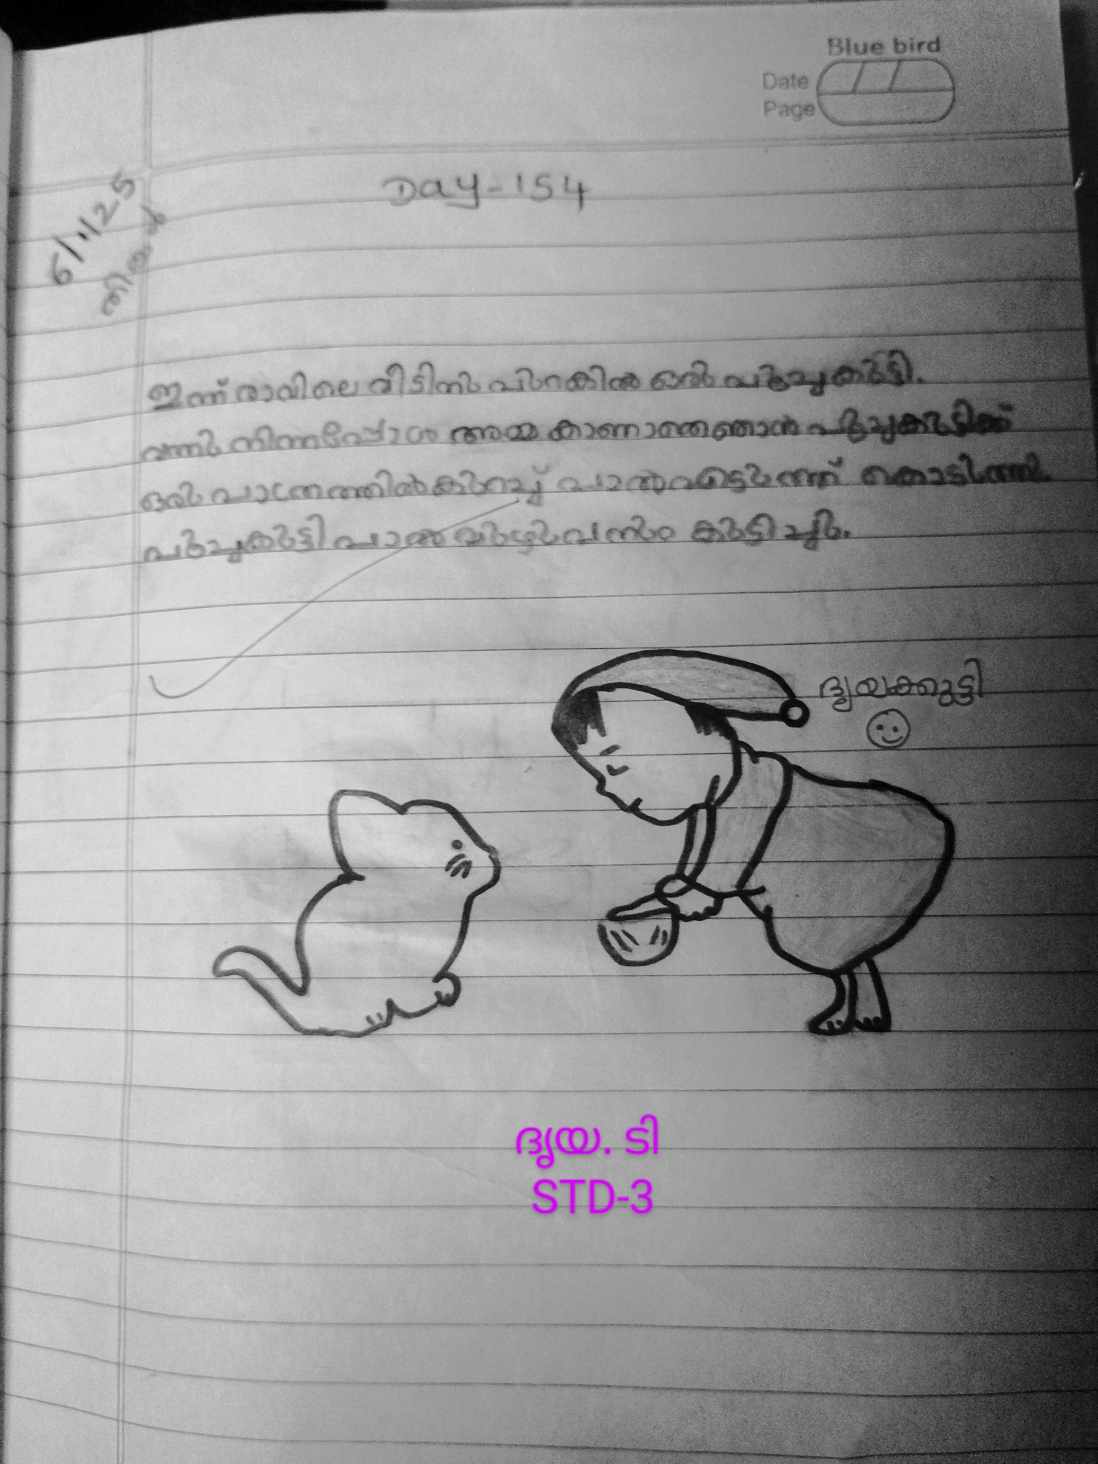 Blue bird
Date
Page
6/1/25
തിങ്കൾ
Day-154
ഇന്ന് രാവിലെ വീടിനു പുറകിൽ ഒരു പൂച്ചകുട്ടി.
വന്നു നിന്നപ്പോൾ അമ്മ കാണാതെ ഞാൻ പൂച്ചകുട്ടിക്ക്
ഒരു പാത്രത്തിൽ കുറച്ച് പാൽ എടുത്ത് കൊടുത്തു
പൂച്ചകുട്ടി പാൽ മുഴുവനും കുടിച്ചു.
ദൃയക്കുട്ടി
ദൃയ. ടി
STD-3